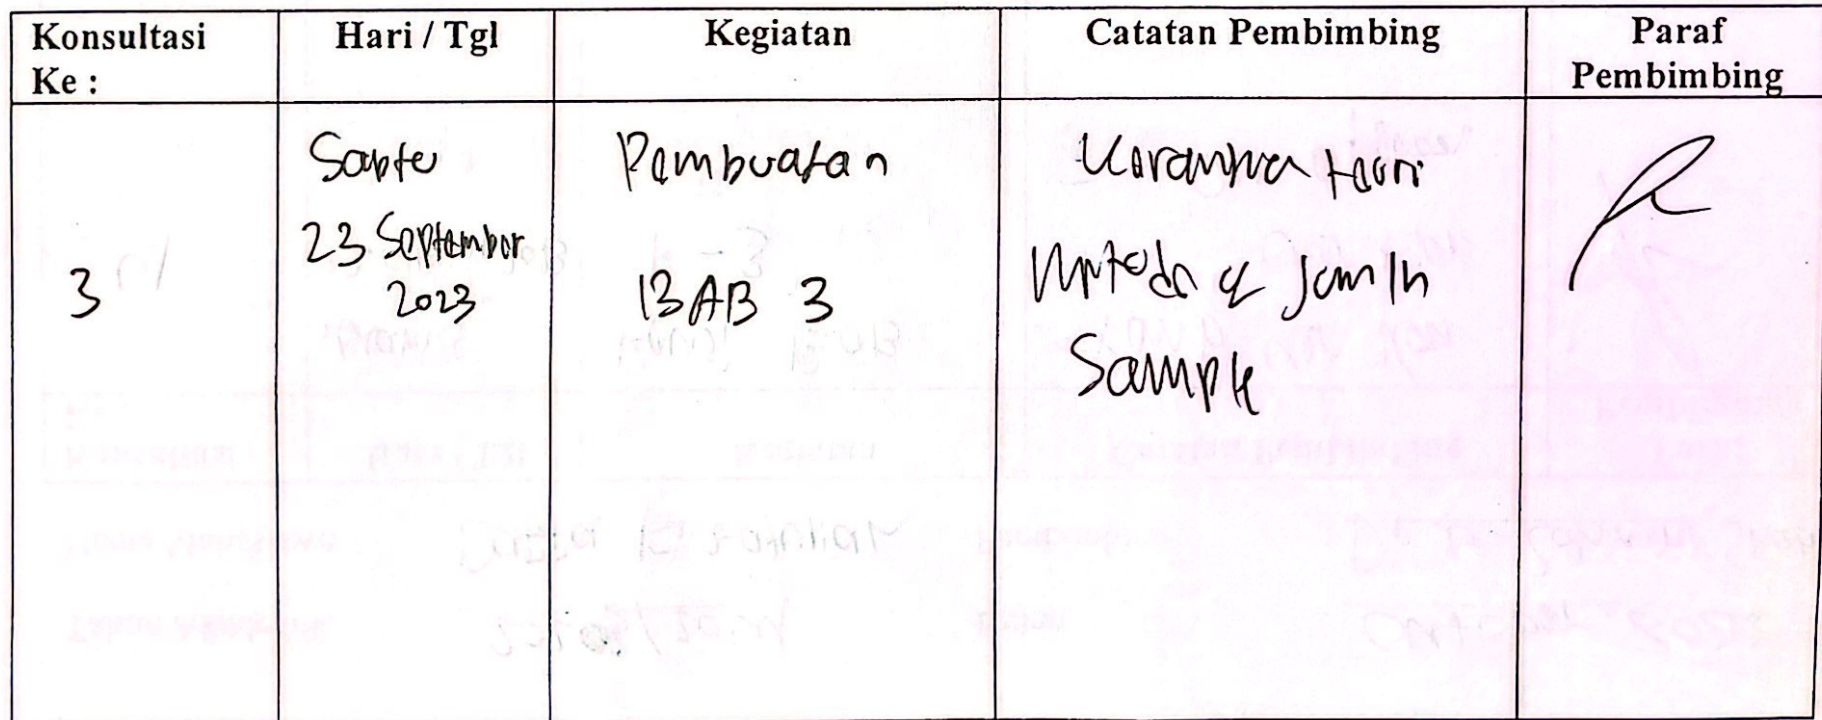 Konsultasi Ke :
Hari / Tgl
Kegiatan
Catatan Pembimbing
Paraf Pembimbing
3
Sabtu
23 September
2023
Pembuatan
BAB 3
Metode & Jumlh
Sample